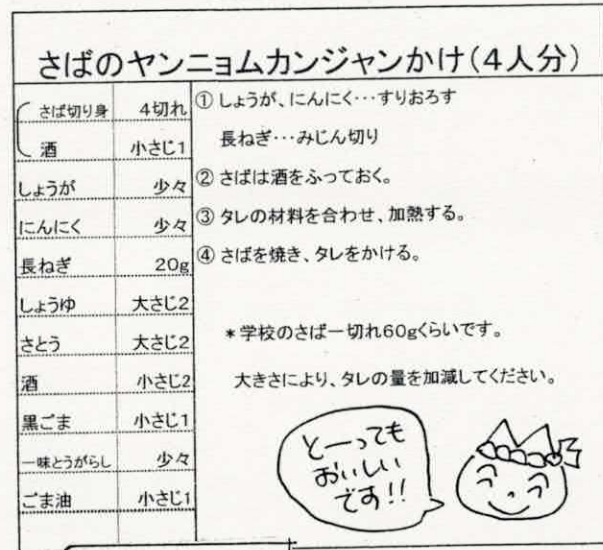 さばのヤンニョムカンジャンかけ(4人分)
さば切り身 4切れ
酒 小さじ1
しょうが 少々
にんにく 少々
長ねぎ 20g
しょうゆ 大さじ2
さとう 大さじ2
酒 小さじ2
黒ごま 小さじ1
一味とうがらし 少々
ごま油 小さじ1
① しょうが、にんにく…すりおろす
長ねぎ…みじん切り
② さばは酒をふっておく。
③ タレの材料を合わせ、加熱する。
④ さばを焼き、タレをかける。
*学校のさば一切れ60gくらいです。
大きさにより、タレの量を加減してください。
とーっても
おいしい
です!!